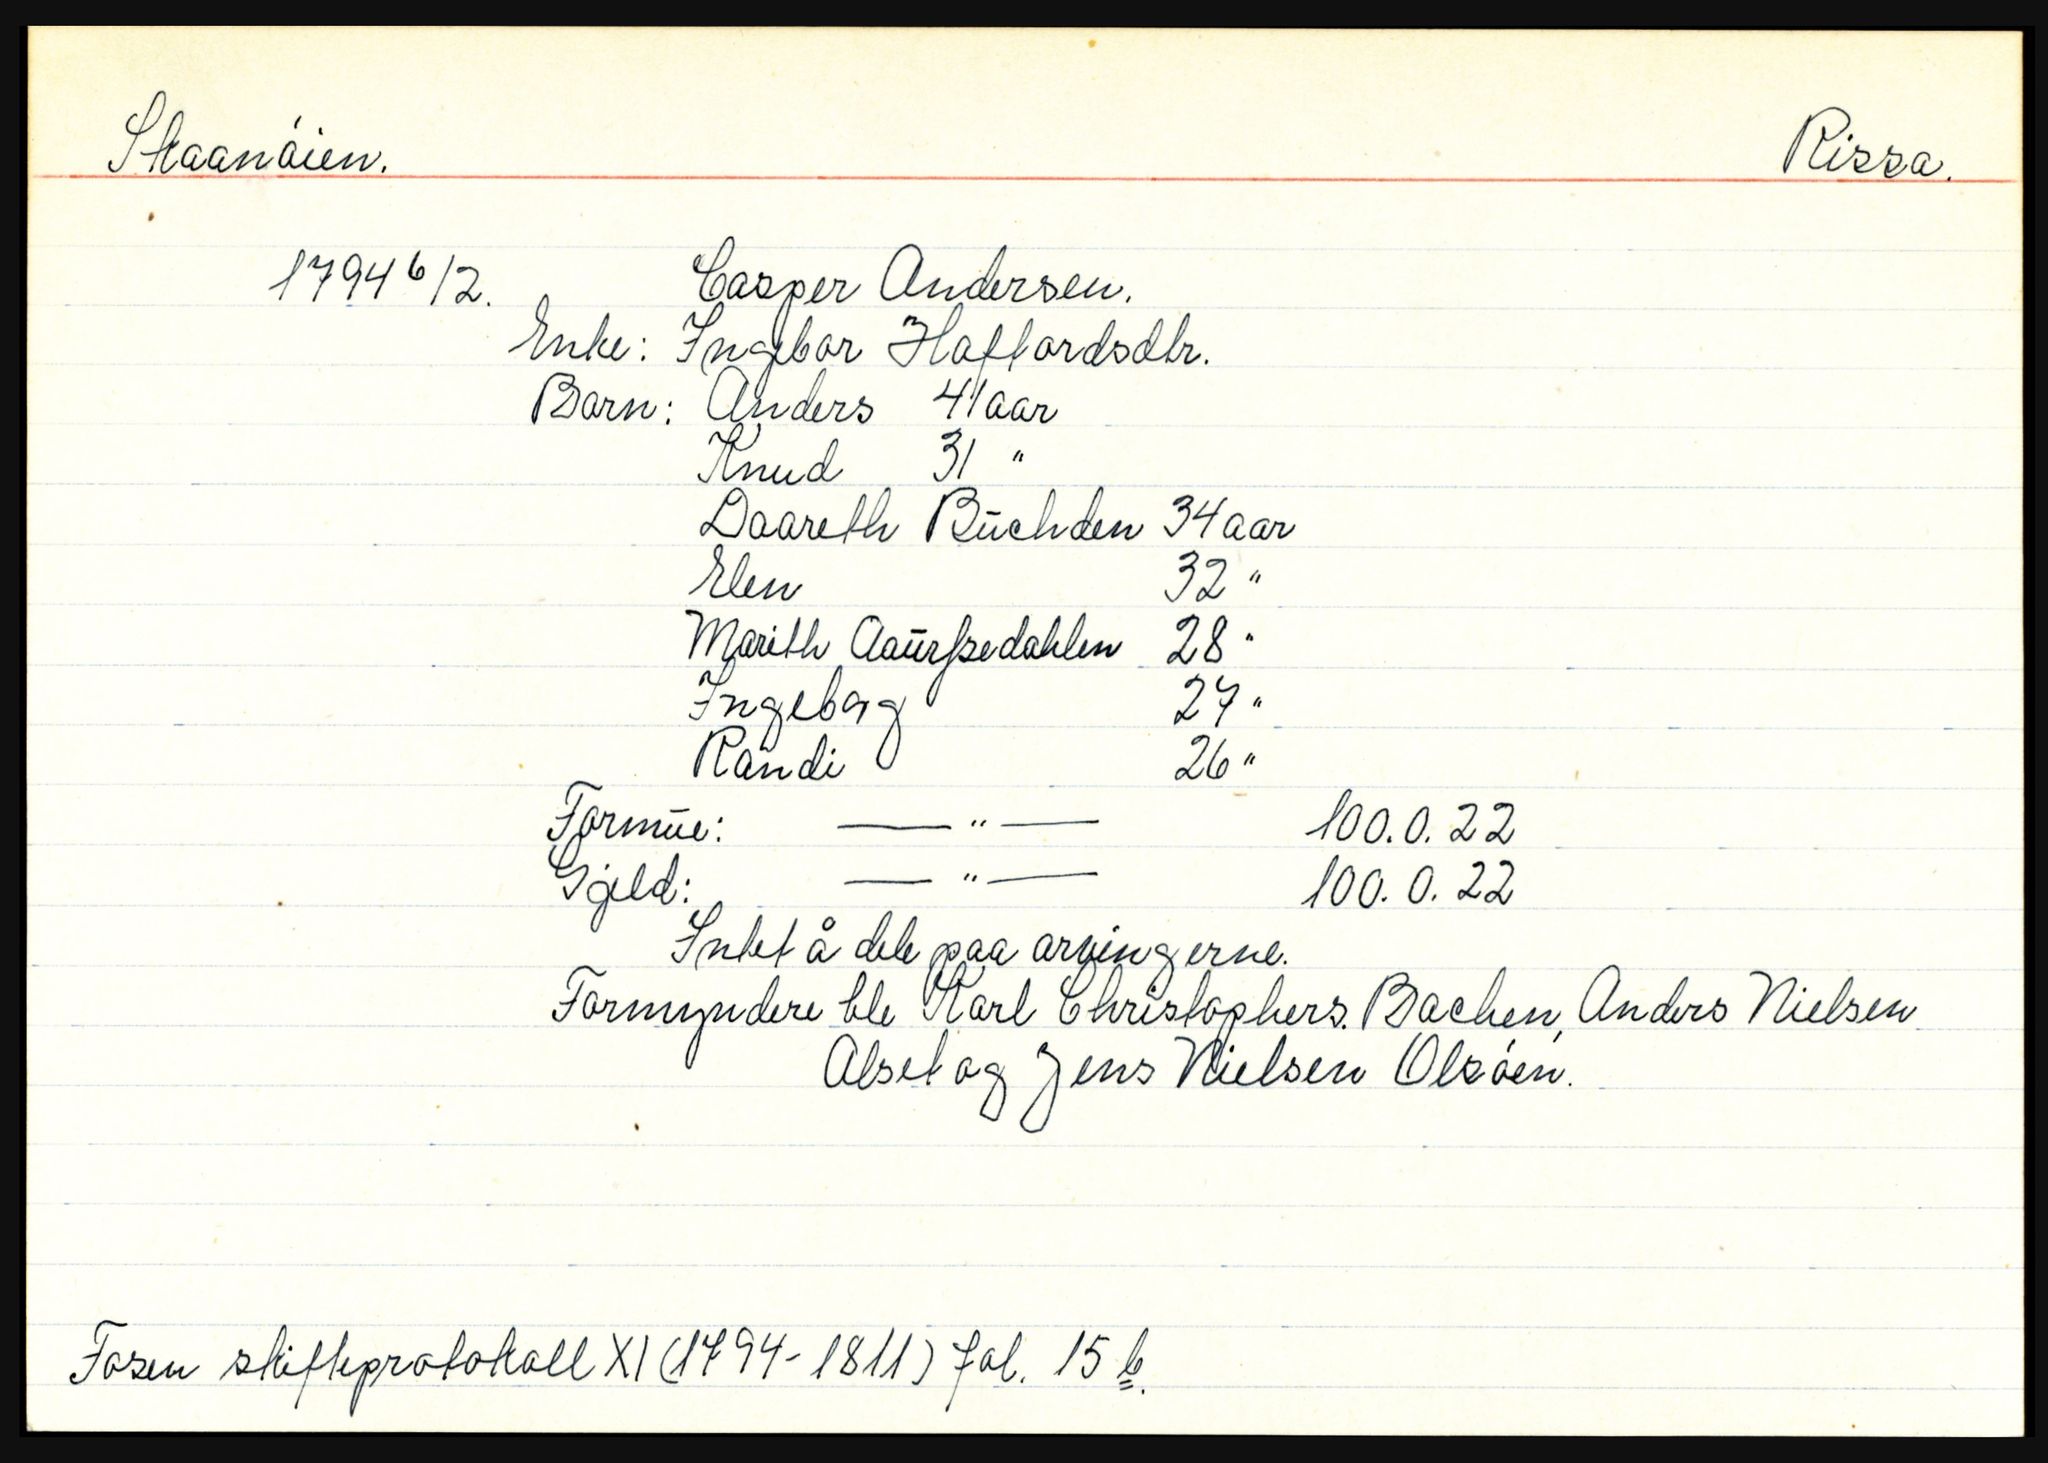 Skaanøien. Rissa.
1794 6/2. Casper Andersen.
Enke: Ingebor Haftordsdtr.
Born: Anders 41 aar
Knud 31 "
Doareth Büchden 34 aar
Elen 32 "
Marith Aaürfsedahlen 28 "
Ingeborg 27 "
Randi 26 "
Formüe: — " — 100. 0. 22
Gjeld: — " — 100. 0. 22
Intet å dele paa arvingerne.
Formyndere ble Karl Christophers. Bachen, Anders Nielsen
Alset og Jens Nielsen Olsøen.
Fosen skifteprotokoll XI (1794-1811) fol. 15 b.